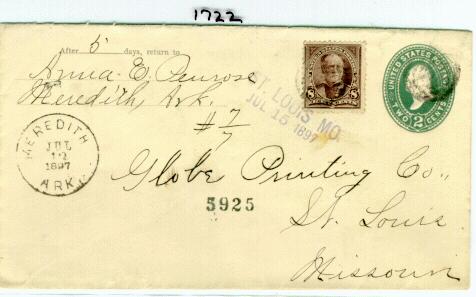 1722
After 5 days, return to
Anna E. Penrose
Meredith, Ark.
# 7/7
ST. LOUIS MO.
JUL 15 1897
8 8
UNITED STATES POSTAGE
TWO 2 CENTS
MEREDITH
JUL
12
1897
ARK.
Globe Printing Co.,
5925
St. Louis
Missouri